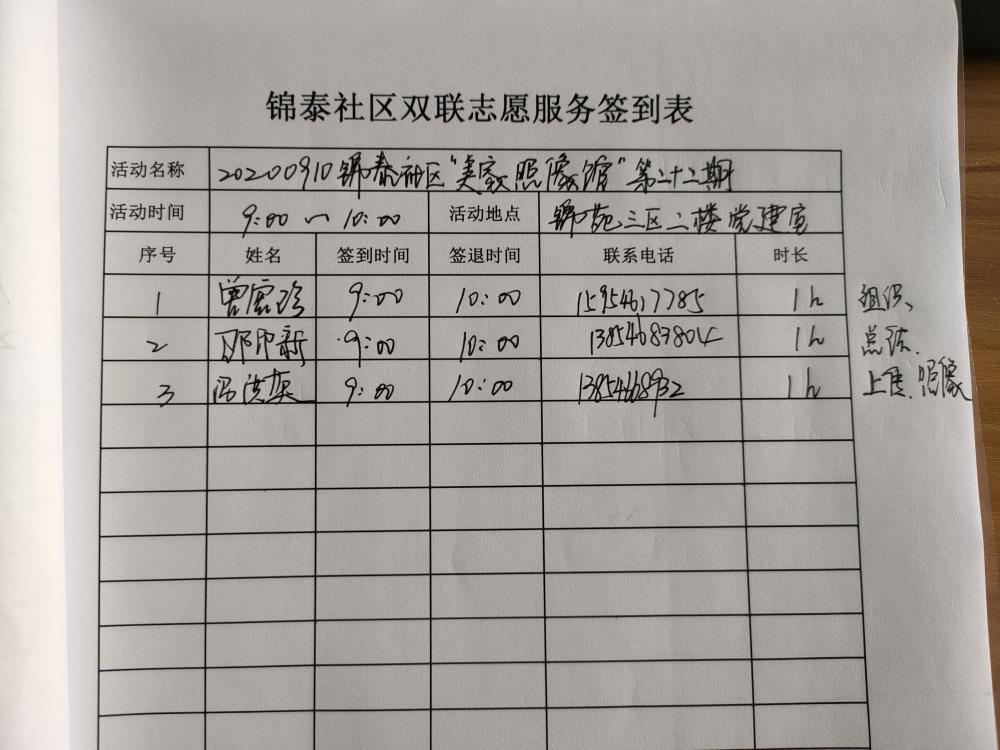 锦泰社区双联志愿服务签到表
活动名称 20200910锦泰社区"美家照像馆"第二十二期
活动时间 9:00~10:00 活动地点 锦苑三区二楼党建室
序号 姓名 签到时间 签退时间 联系电话 时长
1 9:00 10:00 15954617785 1h 组织、
2 邓印新 9:00 10:00 13854683804 1h 总结.
3 冯洪英 9:00 10:00 13854668932 1h 上传.照像